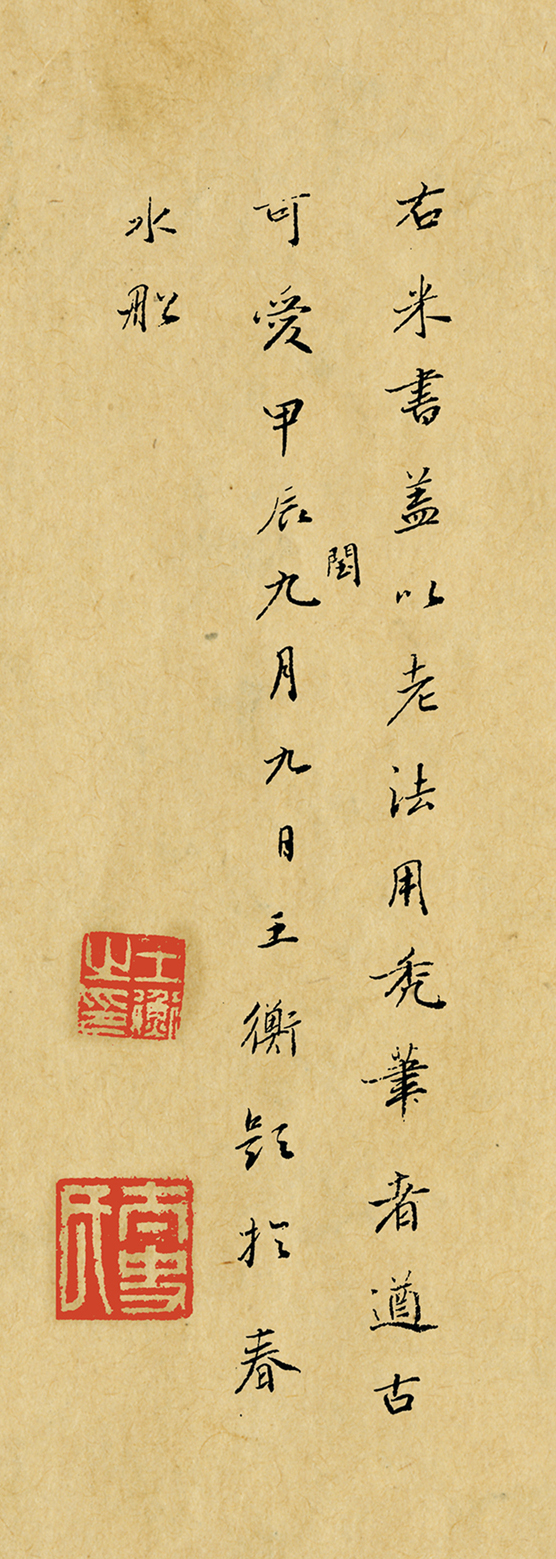 右米書蓋以老法用禿筆者遒古
可愛甲辰閏九月九日王衡題於春
水船
王衡之印